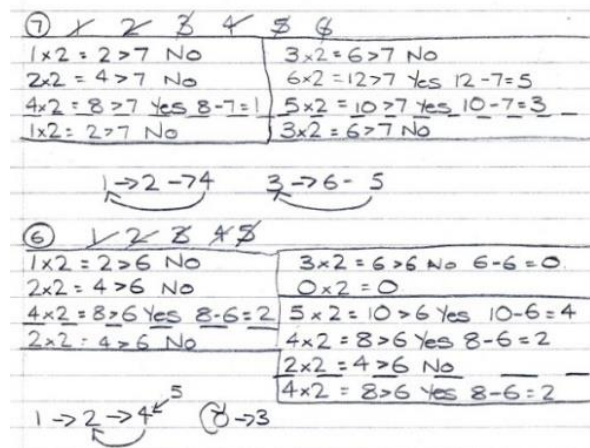 ⑦ 1 2 3 4 5 6
1×2 = 2>7 No
2×2 = 4>7 No
4×2 = 8>7 Yes 8-7=1
1×2 = 2>7 No
3×2 = 6>7 No
6×2 = 12>7 Yes 12-7=5
5×2 = 10>7 Yes 10-7=3
3×2 = 6>7 No
1→2→4 3→6- 5
⑥ 1 2 3 4 5
1×2 = 2>6 No
2×2 = 4>6 No
4×2 = 8>6 Yes 8-6=2
2×2 = 4>6 No
3×2 = 6>6 No 6-6=0.
0×2 = 0.
5×2 = 10>6 Yes 10-6=4
4×2 = 8>6 Yes 8-6=2
2×2 = 4>6 No
4×2 = 8>6 Yes 8-6=2
5
1→2→4 0→3